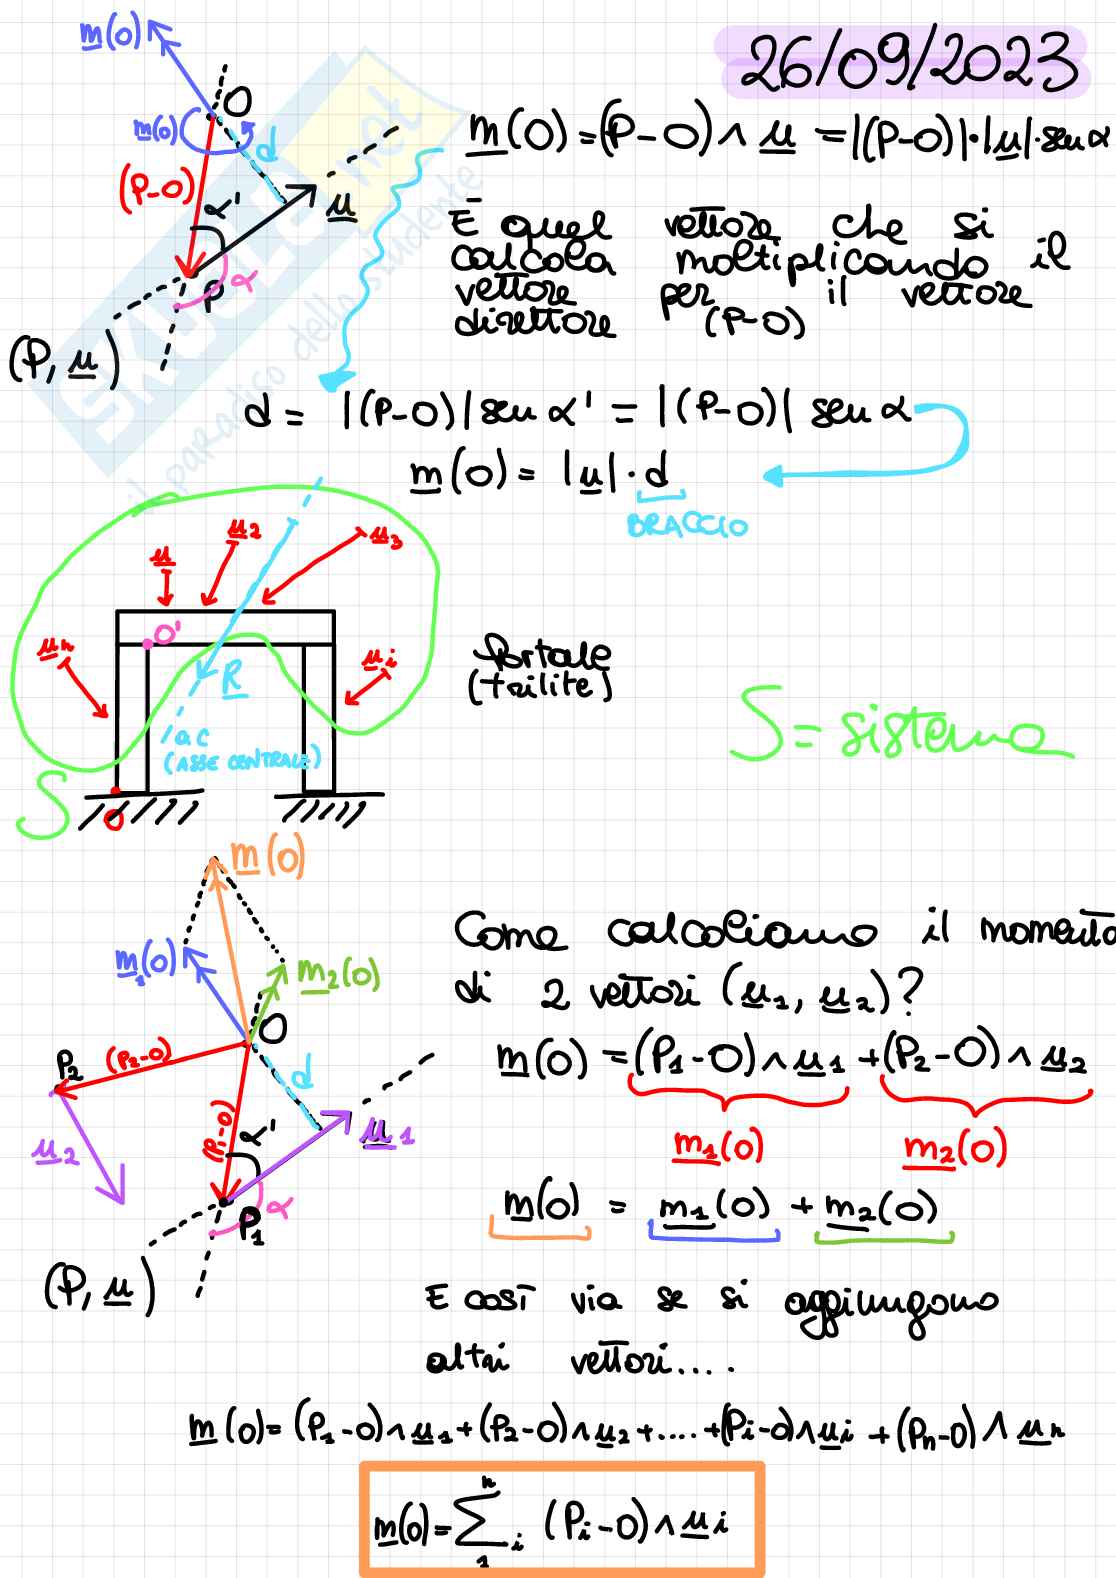 26/09/2023
m(O)
O
m(O)
d
(P-O)
α'
u
α
P
(P, u)
m(O) = (P-O) ∧ u = |(P-O)|·|u|·sen α
È quel vettore che si
calcola moltiplicando il
vettore per il vettore
direttore (P-O)
SKUOLA.net
il paradiso dello studente
d = |(P-O)| sen α' = |(P-O)| sen α
m(O) = |u| · d
BRACCIO
u
u2
u3
O'
un
ui
R
a c
(ASSE CENTRALE)
S
O
Portale
(trilite)
S = sistema
m(O)
m1(O)
m2(O)
O
P2
(P2-O)
d
u2
(P1-O)
α'
u1
α
P1
(P, u)
Come calcoliamo il momento
di 2 vettori (u1, u2)?
m(O) = (P1-O) ∧ u1 + (P2-O) ∧ u2
m1(O) m2(O)
m(O) = m1(O) + m2(O)
E così via se si aggiungono
altri vettori....
m(O) = (P1-O) ∧ u1 + (P2-O) ∧ u2 + .... + (Pi-O) ∧ ui + (Pn-O) ∧ un
m(O) = ∑ n 1 i (Pi-O) ∧ ui